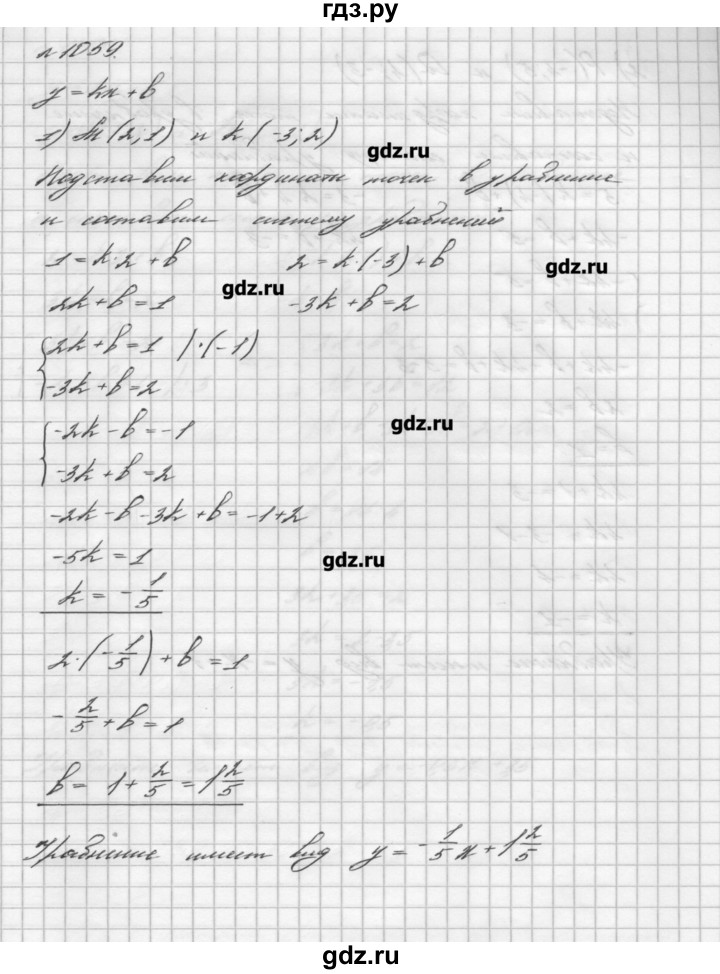 гдз.ру
№1059.
y = kx + b
1) M (2; 1) и K (-3; 2)
gdz.ru
Подставим координаты точек в уравнение
и составим систему уравнений
1 = k·2 + b 2 = k·(-3) + b
gdz.ru
gdz.ru
2k + b = 1 -3k + b = 2
2k + b = 1 | ·(-1)
-3k + b = 2
gdz.ru
-2k - b = -1
-3k + b = 2
-2k - b - 3k + b = -1 + 2
-5k = 1
gdz.ru
k = -1/5
2·(-1/5) + b = 1
-2/5 + b = 1
b = 1 + 2/5 = 1 2/5
Уравнение имеет вид y = -1/5 x + 1 2/5
gdz.ru